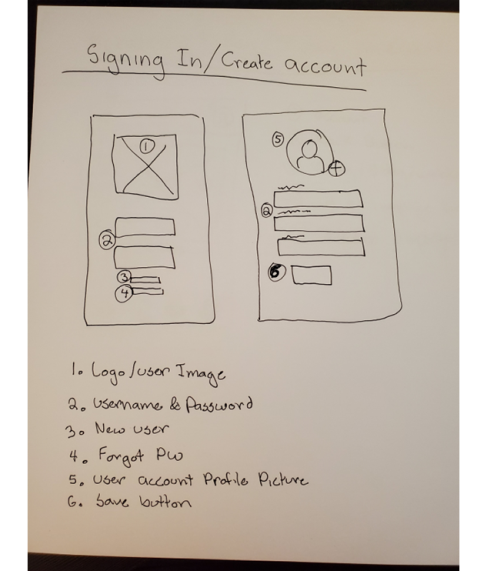 Signing In/Create account
1
5
+
2
2
3
6
4
1. Logo/user Image
2. Username & Password
3. New user
4. Forgot PW
5. User account Profile Picture
6. Save button